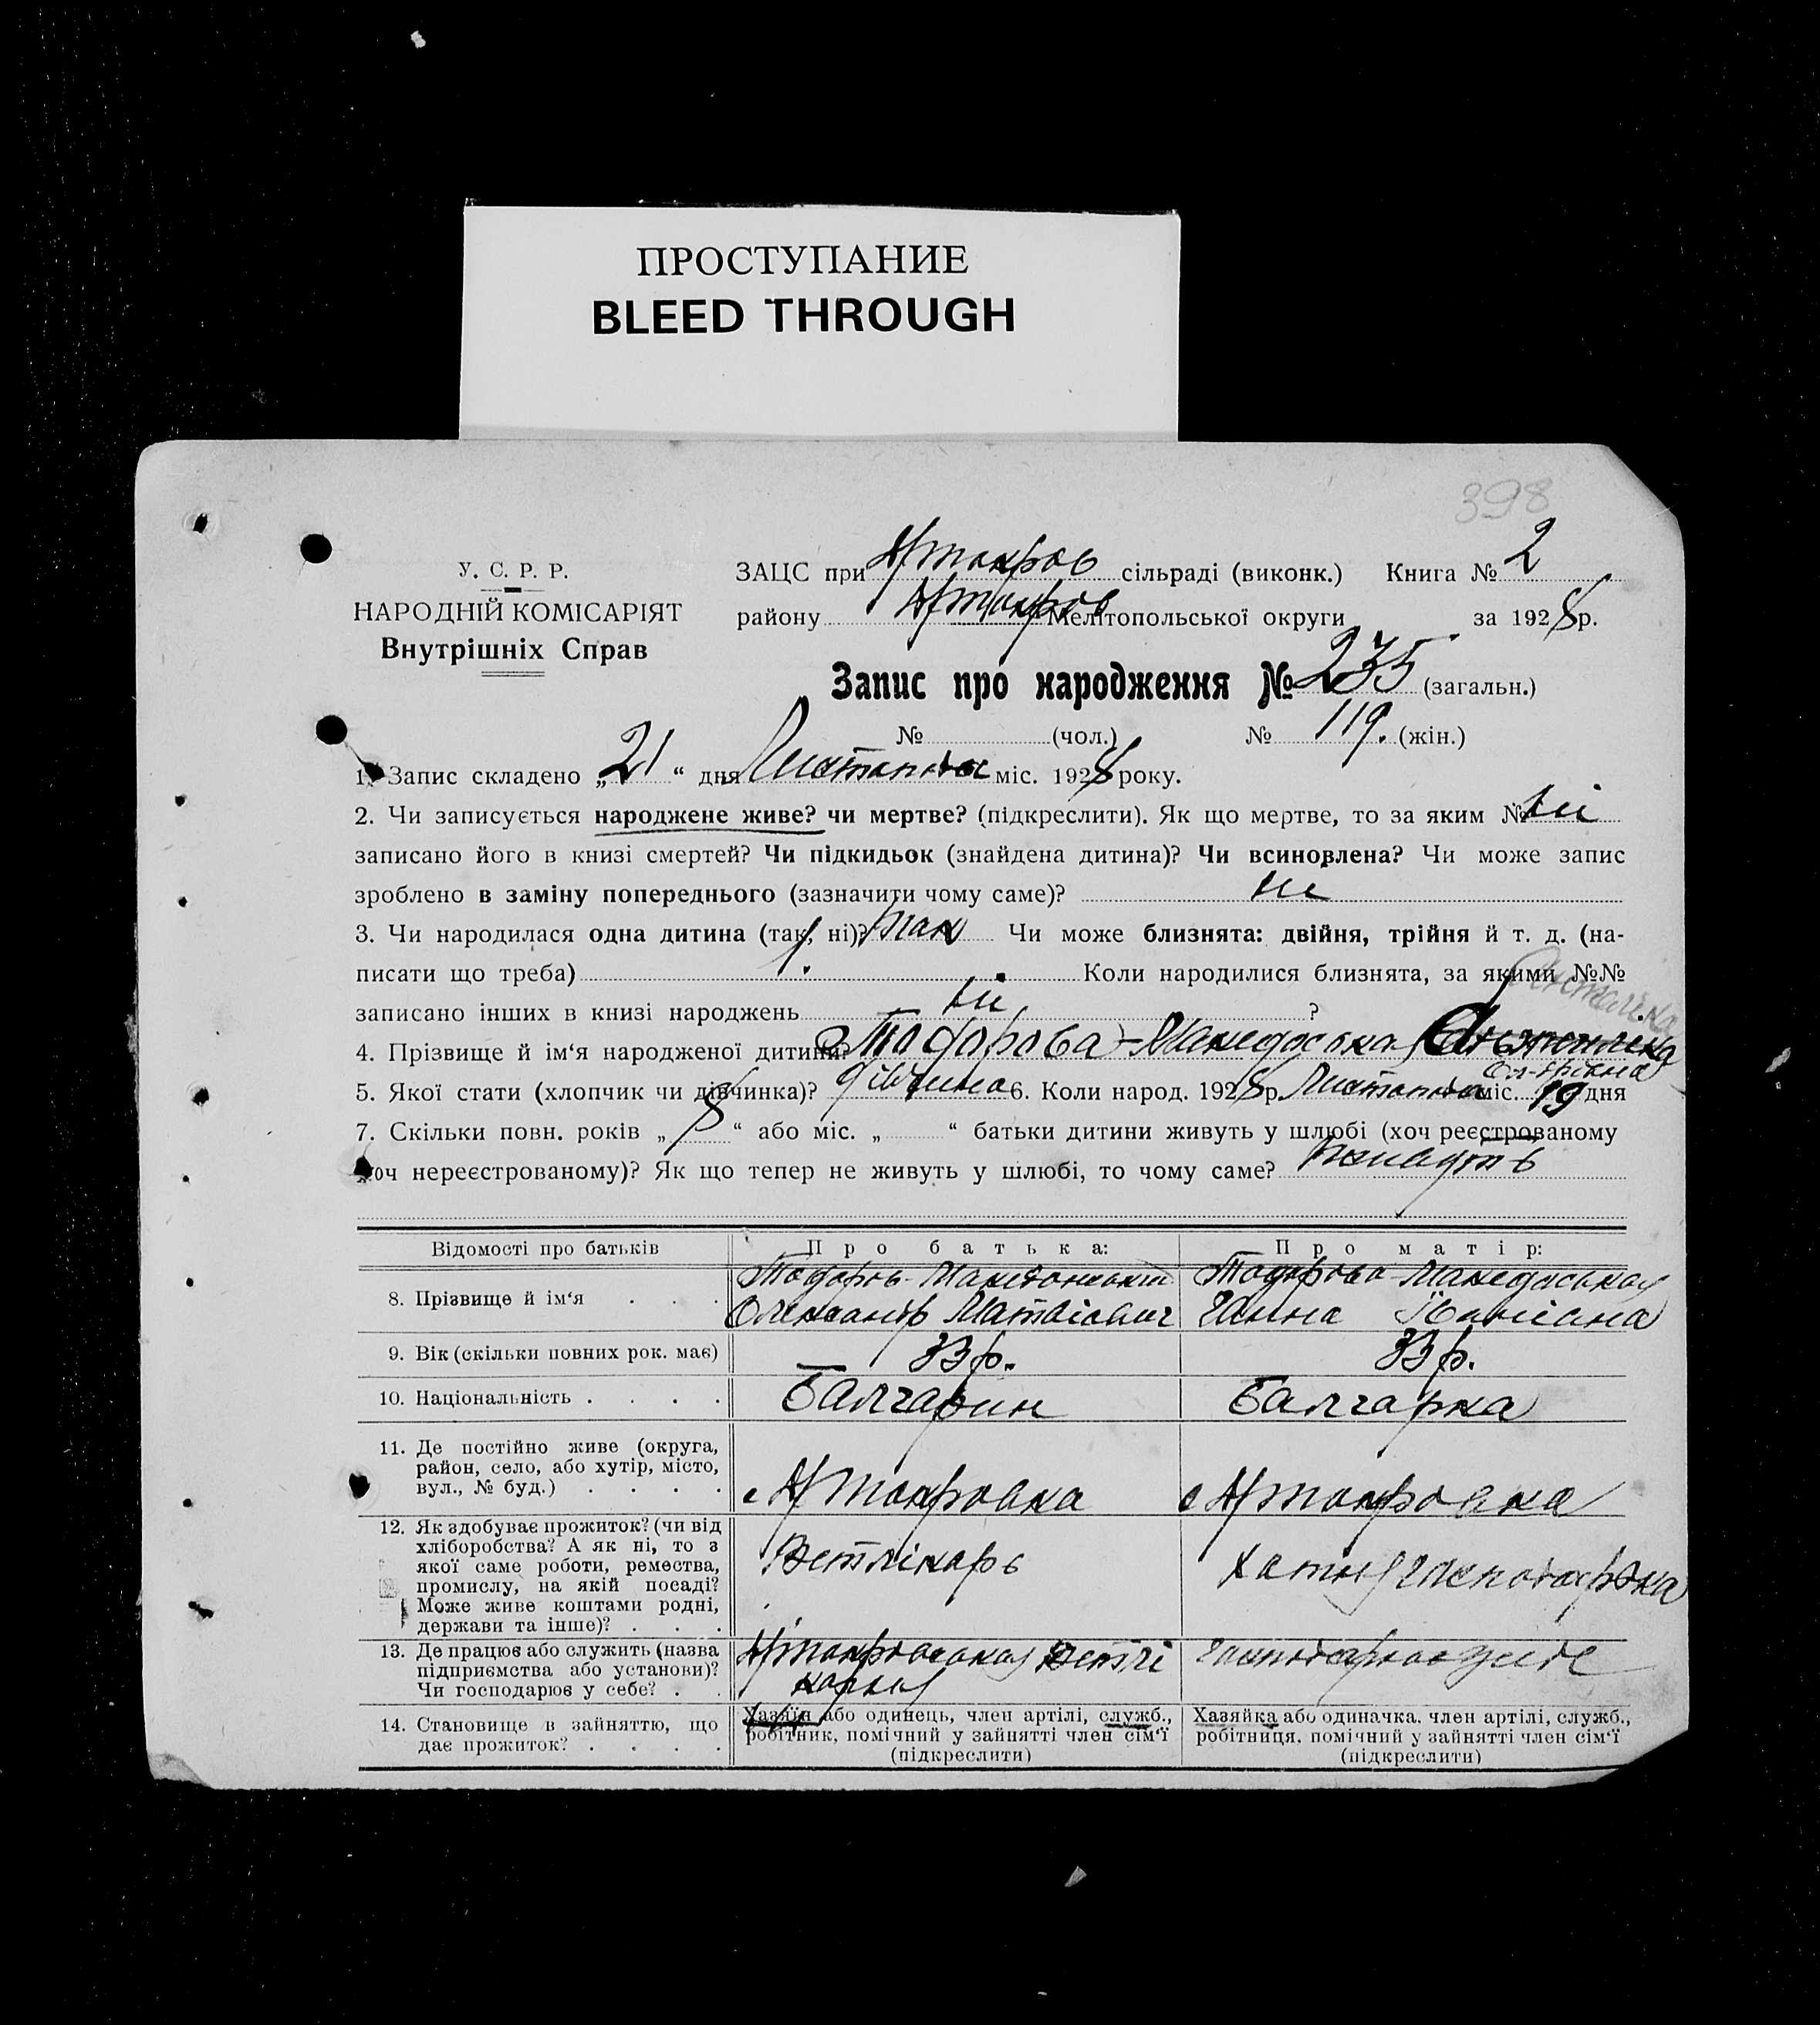 ПРОСТУПАНИЕ
BLEED THROUGH
398
У. С. Р. Р.
НАРОДНІЙ КОМІСАРІЯТ
Внутрішніх Справ
ЗАЦС при сільраді (виконк.) Книга № 2
району Мелітопольської округи за 1928 р.
Запис про народження № 235 (загальн.)
№ (чол.) № 119. (жін.)
1. Запис складено „21“ дня Листопада міс. 1928 року.
2. Чи записується народжене живе? чи мертве? (підкреслити). Як що мертве, то за яким № ні
записано його в книзі смертей? Чи підкидьок (знайдена дитина)? Чи всиновлена? Чи може запис
зроблено в заміну попереднього (зазначити чому саме)? ні
3. Чи народилася одна дитина (так, ні)? так Чи може близнята: двійня, трійня й т. д. (на-
писати що треба) Коли народилися близнята, за якими №№
записано інших в книзі народжень ні ?
4. Прізвище й ім‘я народженої дитини? Тодорова-Македоська
5. Якої стати (хлопчик чи дівчинка)? дівчина 6. Коли народ. 1928 р. Листопада міс. 19 дня
7. Скільки повн. років „8“ або міс. „ “ батьки дитини живуть у шлюбі (хоч реєстрованому
хоч нереєстрованому)? Як що тепер не живуть у шлюбі, то чому саме?
Відомості про батьків Про батька: Про матір:
8. Прізвище й ім‘я . . . Тодоров-Македонський Тодорова-Македоськая
Олександр Матвієвич Ганна
9. Вік (скільки повних рок. має) 33 р. 33 р.
10. Національність . . . . Балгарин Балгарка
11. Де постійно живе (округа,
район, село, або хутір, місто,
вул., № буд.) . . . .
12. Як здобуває прожиток? (чи від
хліборобства? А як ні, то з
якої саме роботи, ремества,
промислу, на якій посаді?
Може живе коштами родні,
держави та інше)? . . .
Ветлікарь
13. Де працює або служить (назва
підприємства або установи)?
Чи господарює у себе? . .
14. Становище в зайняттю, що
дає прожиток? . . . .
Хазяїн або одинець, член артілі, служб.,
робітник, помічний у зайнятті член сім‘ї
(підкреслити)
Хазяйка або одиначка, член артілі, служб.,
робітниця, помічний у зайнятті член сім‘ї
(підкреслити)